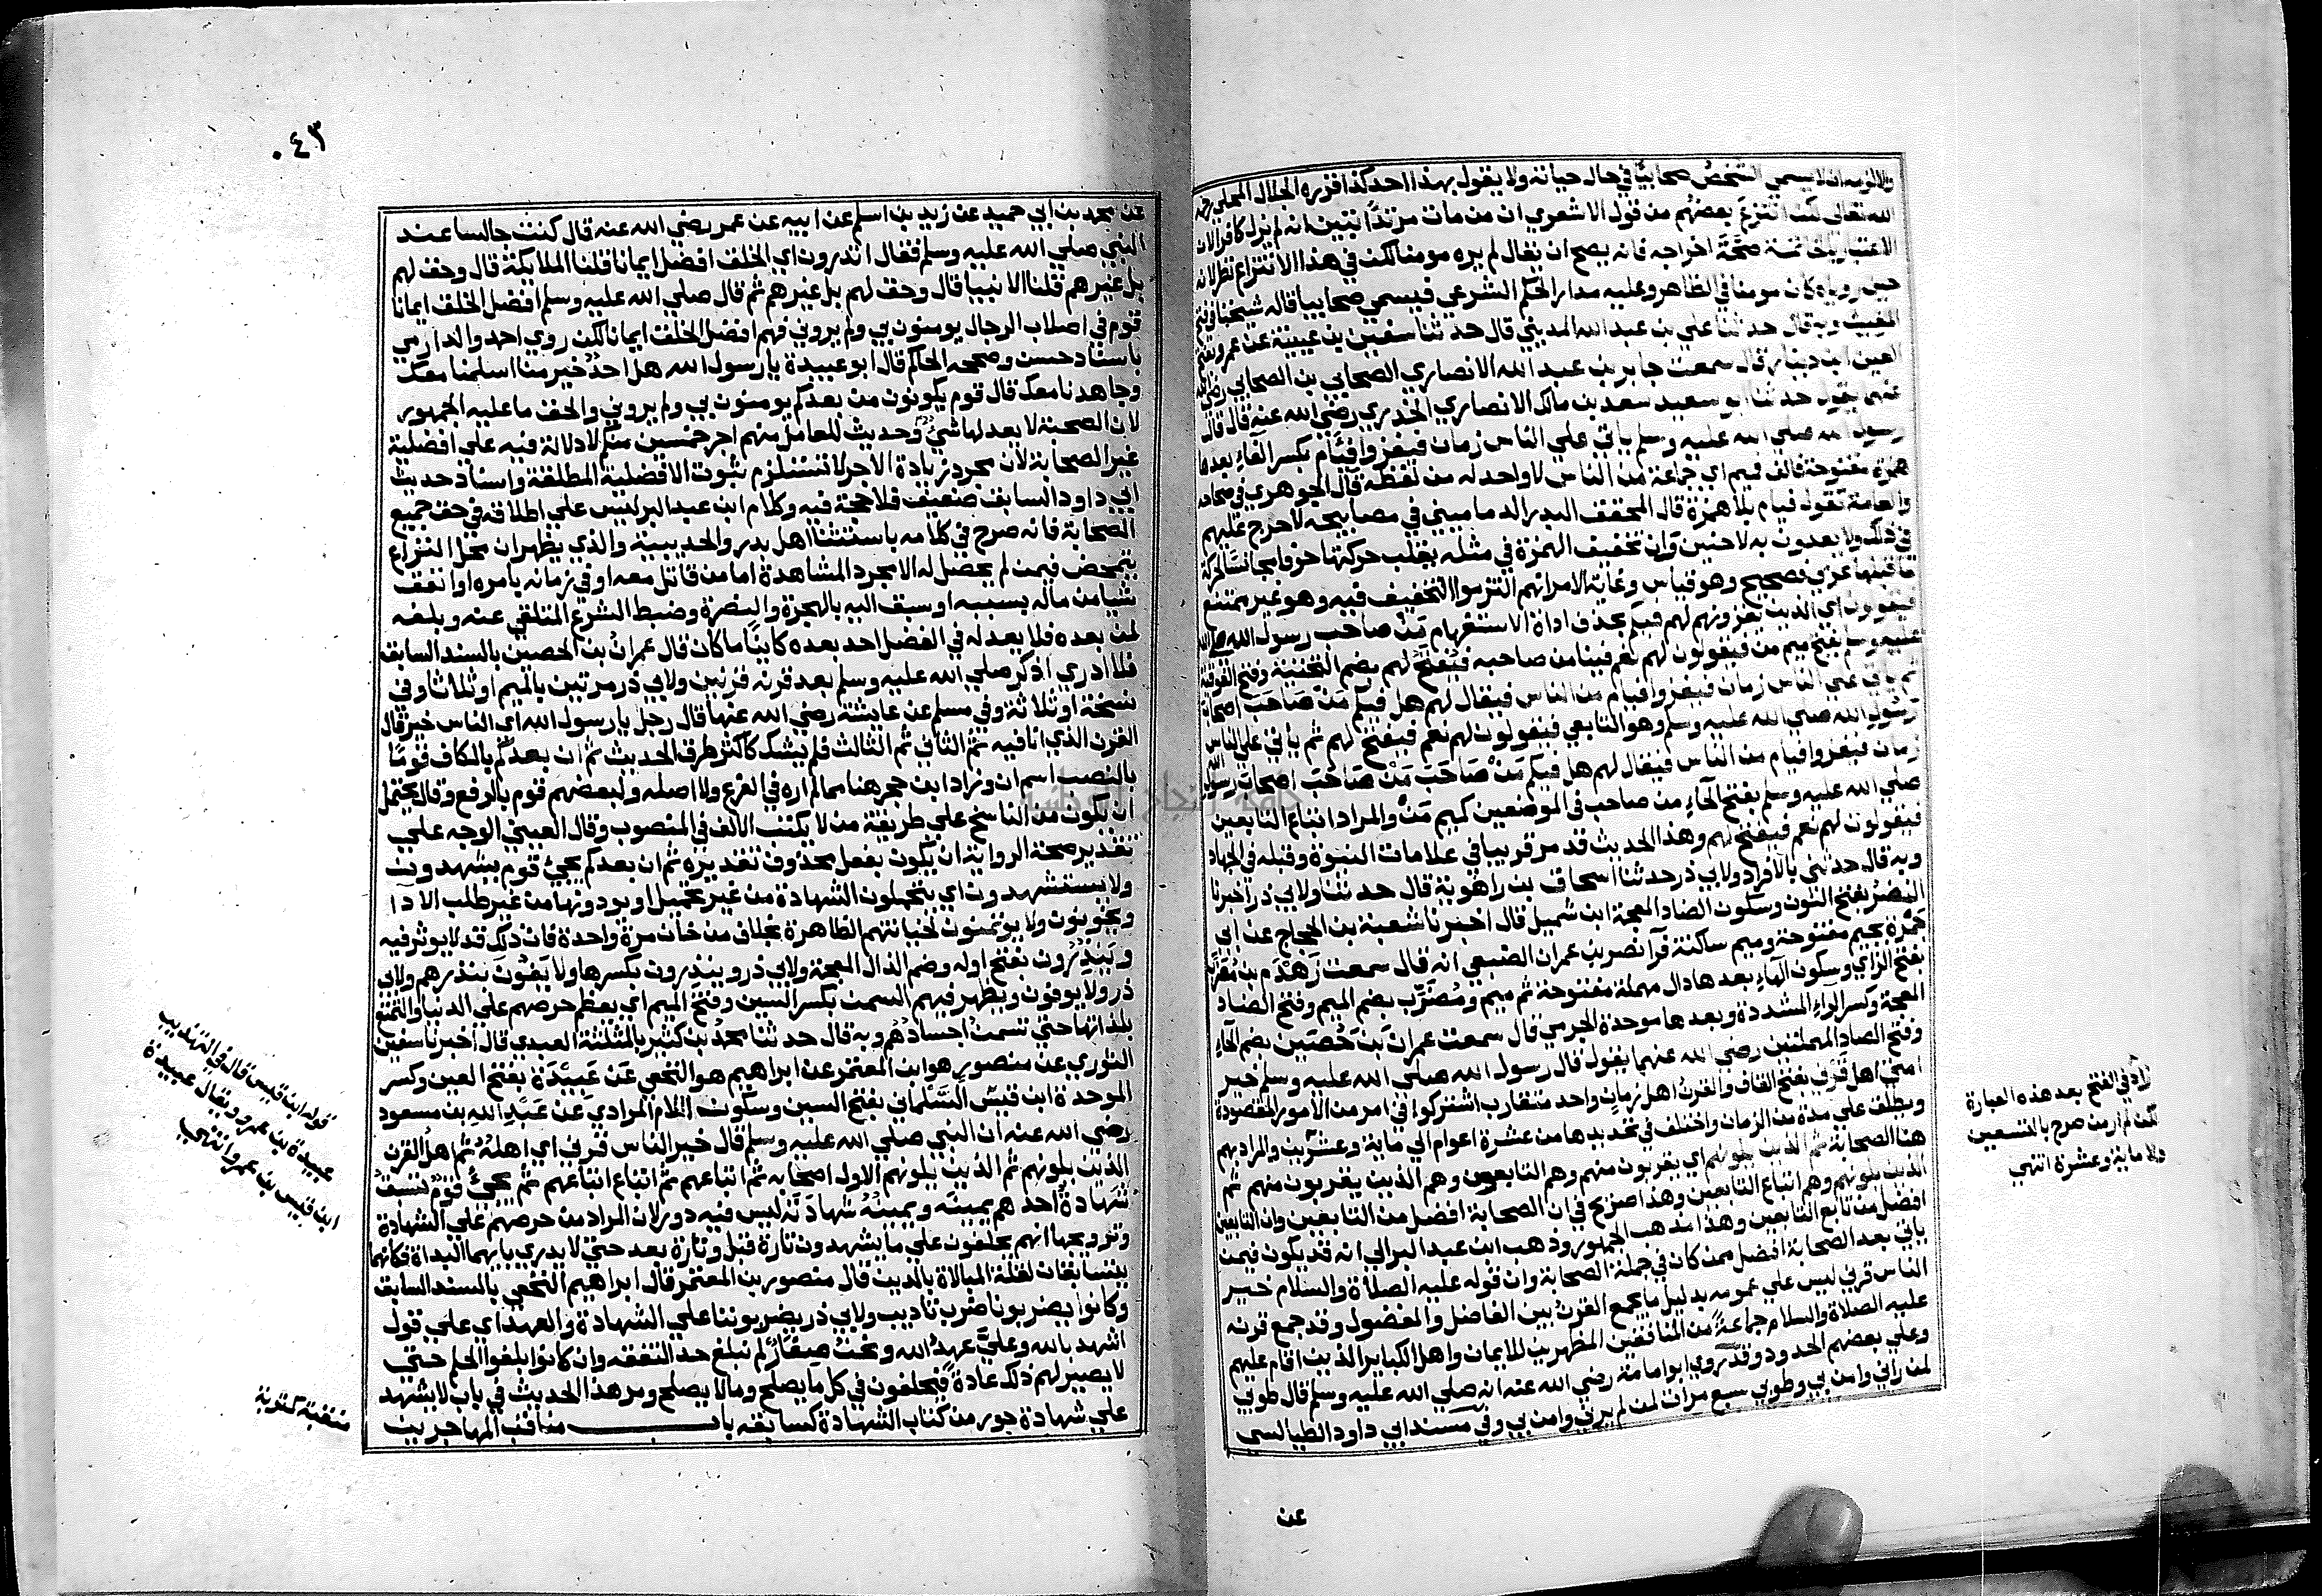 والا لزمه ان لا يسمي الشخص صحابيا في حال حياته ولا يقول بهذا احد كذا قرره الجلال المحلي رحمه
الله تعالي لكن انتزع بعضهم من قول الاشعري ان من مات مرتدا تبين انه لم يزل كافرا لان
الاعتبار بالخاتمة صحة اخراجه فانه يصح ان يقال لم يره مومنا لكن في هذا الانتزاع نظر لانه
حين رويته كان مومنا في الظاهر وعليه مدار الحكم الشرعي فيسمي صحابيا قاله شيخنا في فتح
المغيث وبه قال حدثنا علي بن عبد الله المديني قال حدثنا سفين بن عيينة عن عمرو بفتح
العين ابن دينار قال سمعت جابر بن عبد الله الانصاري الصحابي بن الصحابي رضي الله
عنهما يقول حدثنا ابو سعيد سعد بن مالك الانصاري الخدري رضي الله عنه قال قال
رسول الله صلي الله عليه وسلم ياتي علي الناس زمان فيغزوا فئام بكسر الفاء بعدها
همزة مفتوحة فالف فميم اي جماعة من الناس لا واحد له من لفظه قال الجوهري في صحاحه
والعامة تقول فيام بلا همزة قال المحقق البدر الدماميني في مصابيحه لا حرج عليهم
في ذلك ولا يعدون به لاحنين فان تخفيف الهمزة في مثله بقلب حركتها حرفا مجانسا لحركة
ما قبلها عربي فصيح وهو قياس وغاية الامر انهم التزموا التخفيف فيه وهو غير ممتنع
فيقولون اي الذين يغزونهم لهم فيكم بحذف اداة الاستفهام من صاحب رسول الله صلي الله
عليه وسلم بفتح ميم من فيقولون لهم نعم فينا من صاحبه فيفتح لهم بضم التحتية وفتح الفوقية
ثم ياتي علي الناس زمان فيغزوا فيام من الناس فيقال لهم هل فيكم من صاحب اصحاب
رسول الله صلي الله عليه وسلم وهو التابعي فيقولون لهم نعم فيفتح لهم ثم ياتي علي الناس
زمان فيغزوا فيام من الناس فيقال لهم هل فيكم من صاحب من صاحب اصحاب رسول الله
صلي الله عليه وسلم بفتح الحاء من صاحب في الموضعين كميم من والمراد اتباع التابعين
فيقولون لهم نعم فيفتح لهم وهذا الحديث قد مر قريبا في علامات النبوة وقبله في الجهاد
وبه قال حدثني بالافراد ولابي ذر حدثنا اسحاق بن راهوية قال حدثنا ولابي ذر اخبرنا
النضر بفتح النون وسكون الضاد المعجمة ابن شميل قال اخبرنا شعبة بن الحجاج عن ابي
جمرة بجيم مفتوحة وميم ساكنة فرا نصر بن عمران الضبعي انه قال سمعت زهدم بن مضرب
بفتح الزاي وسكون الهاء بعدها دال مهملة مفتوحة ثم ميم ومضرب بضم الميم وفتح الضاد
المعجمة وكسر الراء المشددة وبعدها موحدة الجرمي قال سمعت عمران بن حصين بضم الحاء
وفتح الصاد المهملتين رضي الله عنهما يقول قال رسول الله صلي الله عليه وسلم خير
امتي اهل قرني بفتح القاف والقرن اهل زمان واحد متقارب اشتركوا في امر من الامور المقصودة
ويطلق علي مدة من الزمان واختلف في تحديدها من عشرة اعوام الي ماية وعشرين والمراد بهم
هنا الصحابة ثم الذين يلونهم اي يقربون منهم وهم التابعون وهم الذين يقربون منهم ثم
الذين يلونهم وهم اتباع التابعين وهذا صريح في ان الصحابة افضل من التابعين وان التابعين
افضل من تابع التابعين وهذا مذهب الجمهور وذهب ابن عبد البر الي انه قد يكون فيمن
ياتي بعد الصحابة افضل ممن كان في جملة الصحابة وان قوله عليه الصلاة والسلام خير
الناس قرني ليس علي عمومه بدليل ما يجمع القرن بين الفاضل والمفضول وقد جمع قرنه
عليه الصلاة والسلام جماعة من المنافقين المظهرين للايمان واهل الكباير الذين اقام عليهم
وعلي بعضهم الحدود وقد روي ابوا مامة رضي الله عنه انه صلي الله عليه وسلم قال طوبي
لمن راني وامن بي وطوبي سبع مرات لمن لم يرني وامن بي وفي مسند ابي داود الطيالسي
عن
زاد في الفتح بعد هذه العبارة
لكن لم ار من صرح بالتسعين
ولا ماية وعشرة انتهي
٠٤٣
عن محمد بن ابي حميد عن زيد بن اسلم عن ابيه عن عمر رضي الله عنه قال كنت جالسا عند
النبي صلي الله عليه وسلم فقال اتدرون اي الخلق افضل ايمانا قلنا الملايكة قال وحق لهم
بل غيرهم قلنا الانبيا قال وحق لهم بل غيرهم ثم قال صلي الله عليه وسلم افضل الخلق ايمانا
قوم في اصلاب الرجال يومنون بي ولم يروني فهم افضل الخلق ايمانا لكن روي احمد والدارمي
باسناد حسن وصححه الحاكم قال ابو عبيدة يا رسول الله هل احد خير منا اسلمنا معك
وجاهدنا معك قال قوم يكونون من بعدكم يومنون بي ولم يروني والحق ما عليه الجمهور
لان الصحبة لا يعدلها شيء وحديث للعامل منهم اجر خمسين منكم لا دلالة فيه علي افضلية
غير الصحابة لان مجرد زيادة الاجر لا تستلزم ثبوت الافضلية المطلقة واسناد حديث
ابي داود السابق ضعيف فلا حجة فيه وكلام ابن عبد البر ليس علي اطلاقه في حق جميع
الصحابة فانه صرح في كلامه باستثنا اهل بدر والحديبية والذي يظهر ان محل النزاع
يتمحض فيمن لم يحصل له الا مجرد المشاهدة اما من قاتل معه او في زمانه بامره او انفق
شيا من ماله بسببه او سبق اليه بالهجرة والنصرة وضبط الشرع المتلقي عنه وبلغه
لمن بعده فلا يعدله في الفضل احد بعده كاينا ما كان قال عمران بن الحصين بالسند السابق
فلا ادري اذكر صلي الله عليه وسلم بعد قرنه قرنين ولابي ذر مرتين بالميم او ثلاثا وفي
نسخة او ثلاثة وفي مسلم عن عايشة رضي الله عنها قال رجل يا رسول الله اي الناس خير قال
القرن الذي انا فيه ثم الثاني ثم الثالث فلم يشك كاكثر طرق الحديث ثم ان بعدكم بالكاف قوما
بالنصب اسم ان وزاد ابن حجر هنا مما لم اره في الفرع ولا اصله ولبعضهم قوم بالرفع وقال يحتمل
ان يكون من الناسخ علي طريقة من لا يكتب الالف في المنصوب وقال العيني الوجه علي
تقدير صحة الرواية ان يكون بفعل محذوف تقديره ثم ان بعدكم يجيء قوم يشهدون
ولا يستشهدون اي يتحملون الشهادة من غير تحميل او يودونها من غير طلب الادا
ويخونون ولا يوتمنون لخيانتهم الظاهرة بخلاف من خان مرة واحدة فان ذلك قد لا يوثر فيه
وينذرون بفتح اوله وضم الذال المعجمة ولابي ذر وينذرون بكسرها ولا يفون بنذرهم ولابي
ذر ولا يوفون ويظهر فيهم السمن بكسر السين وفتح الميم اي يعظم حرصهم علي الدنيا والتمتع
بلذاتها حتي تسمن اجسادهم وبه قال حدثنا محمد بن كثير بالمثلثة العبدي قال اخبرنا سفين
الثوري عن منصور هو ابن المعتمر عن ابراهيم هو النخعي عن عبيدة بفتح العين وكسر
الموحدة ابن قيس السلماني بفتح السين وسكون اللام المرادي عن عبد الله بن مسعود
رضي الله عنه ان النبي صلي الله عليه وسلم قال خير الناس قرني اي اهله ثم اهل القرن
الذين يلونهم ثم الذين يلونهم الاول اصحابه ثم اتباعهم ثم اتباع اتباعهم ثم يجيء قوم تسبق
شهادة احدهم يمينه ويمينه شهادته ليس فيه دور لان المراد من حرصهم علي الشهادة
وترويجها انهم يحلفون علي ما يشهدون تارة قبل وتارة بعد حتي لا يدري بايهما البداة فكانهما
يتسابقان لقلة المبالاة بالدين قال منصور بن المعتمر قال ابراهيم النخعي بالسند السابق
وكانوا يضربونا ضرب تاديب ولابي ذر يضربوننا علي الشهادة والعهد اي علي قول
اشهد بالله وعلي عهد الله ونحن صغار لم نبلغ حد التفقه وان كانوا بلغوا الحلم حتي
لا يصير لهم ذلك عادة فيحلفون في كل ما يصلح وما لا يصلح ومر هذا الحديث في باب لا يشهد
علي شهادة جور من كتاب الشهادة كسابقه باب مناقب المهاجرين
قوله ابن قيس قال في التهذيب
عبيدة بن عمرو ويقال عبيدة
ابن قيس بن عمرو انتهي
منقبة كمتربة